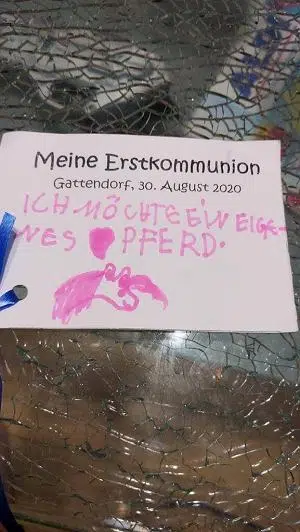 Meine Erstkommunion
Gattendorf, 30. August 2020
ICH MÖCHTE EIN EIGE-
NES PFERD.